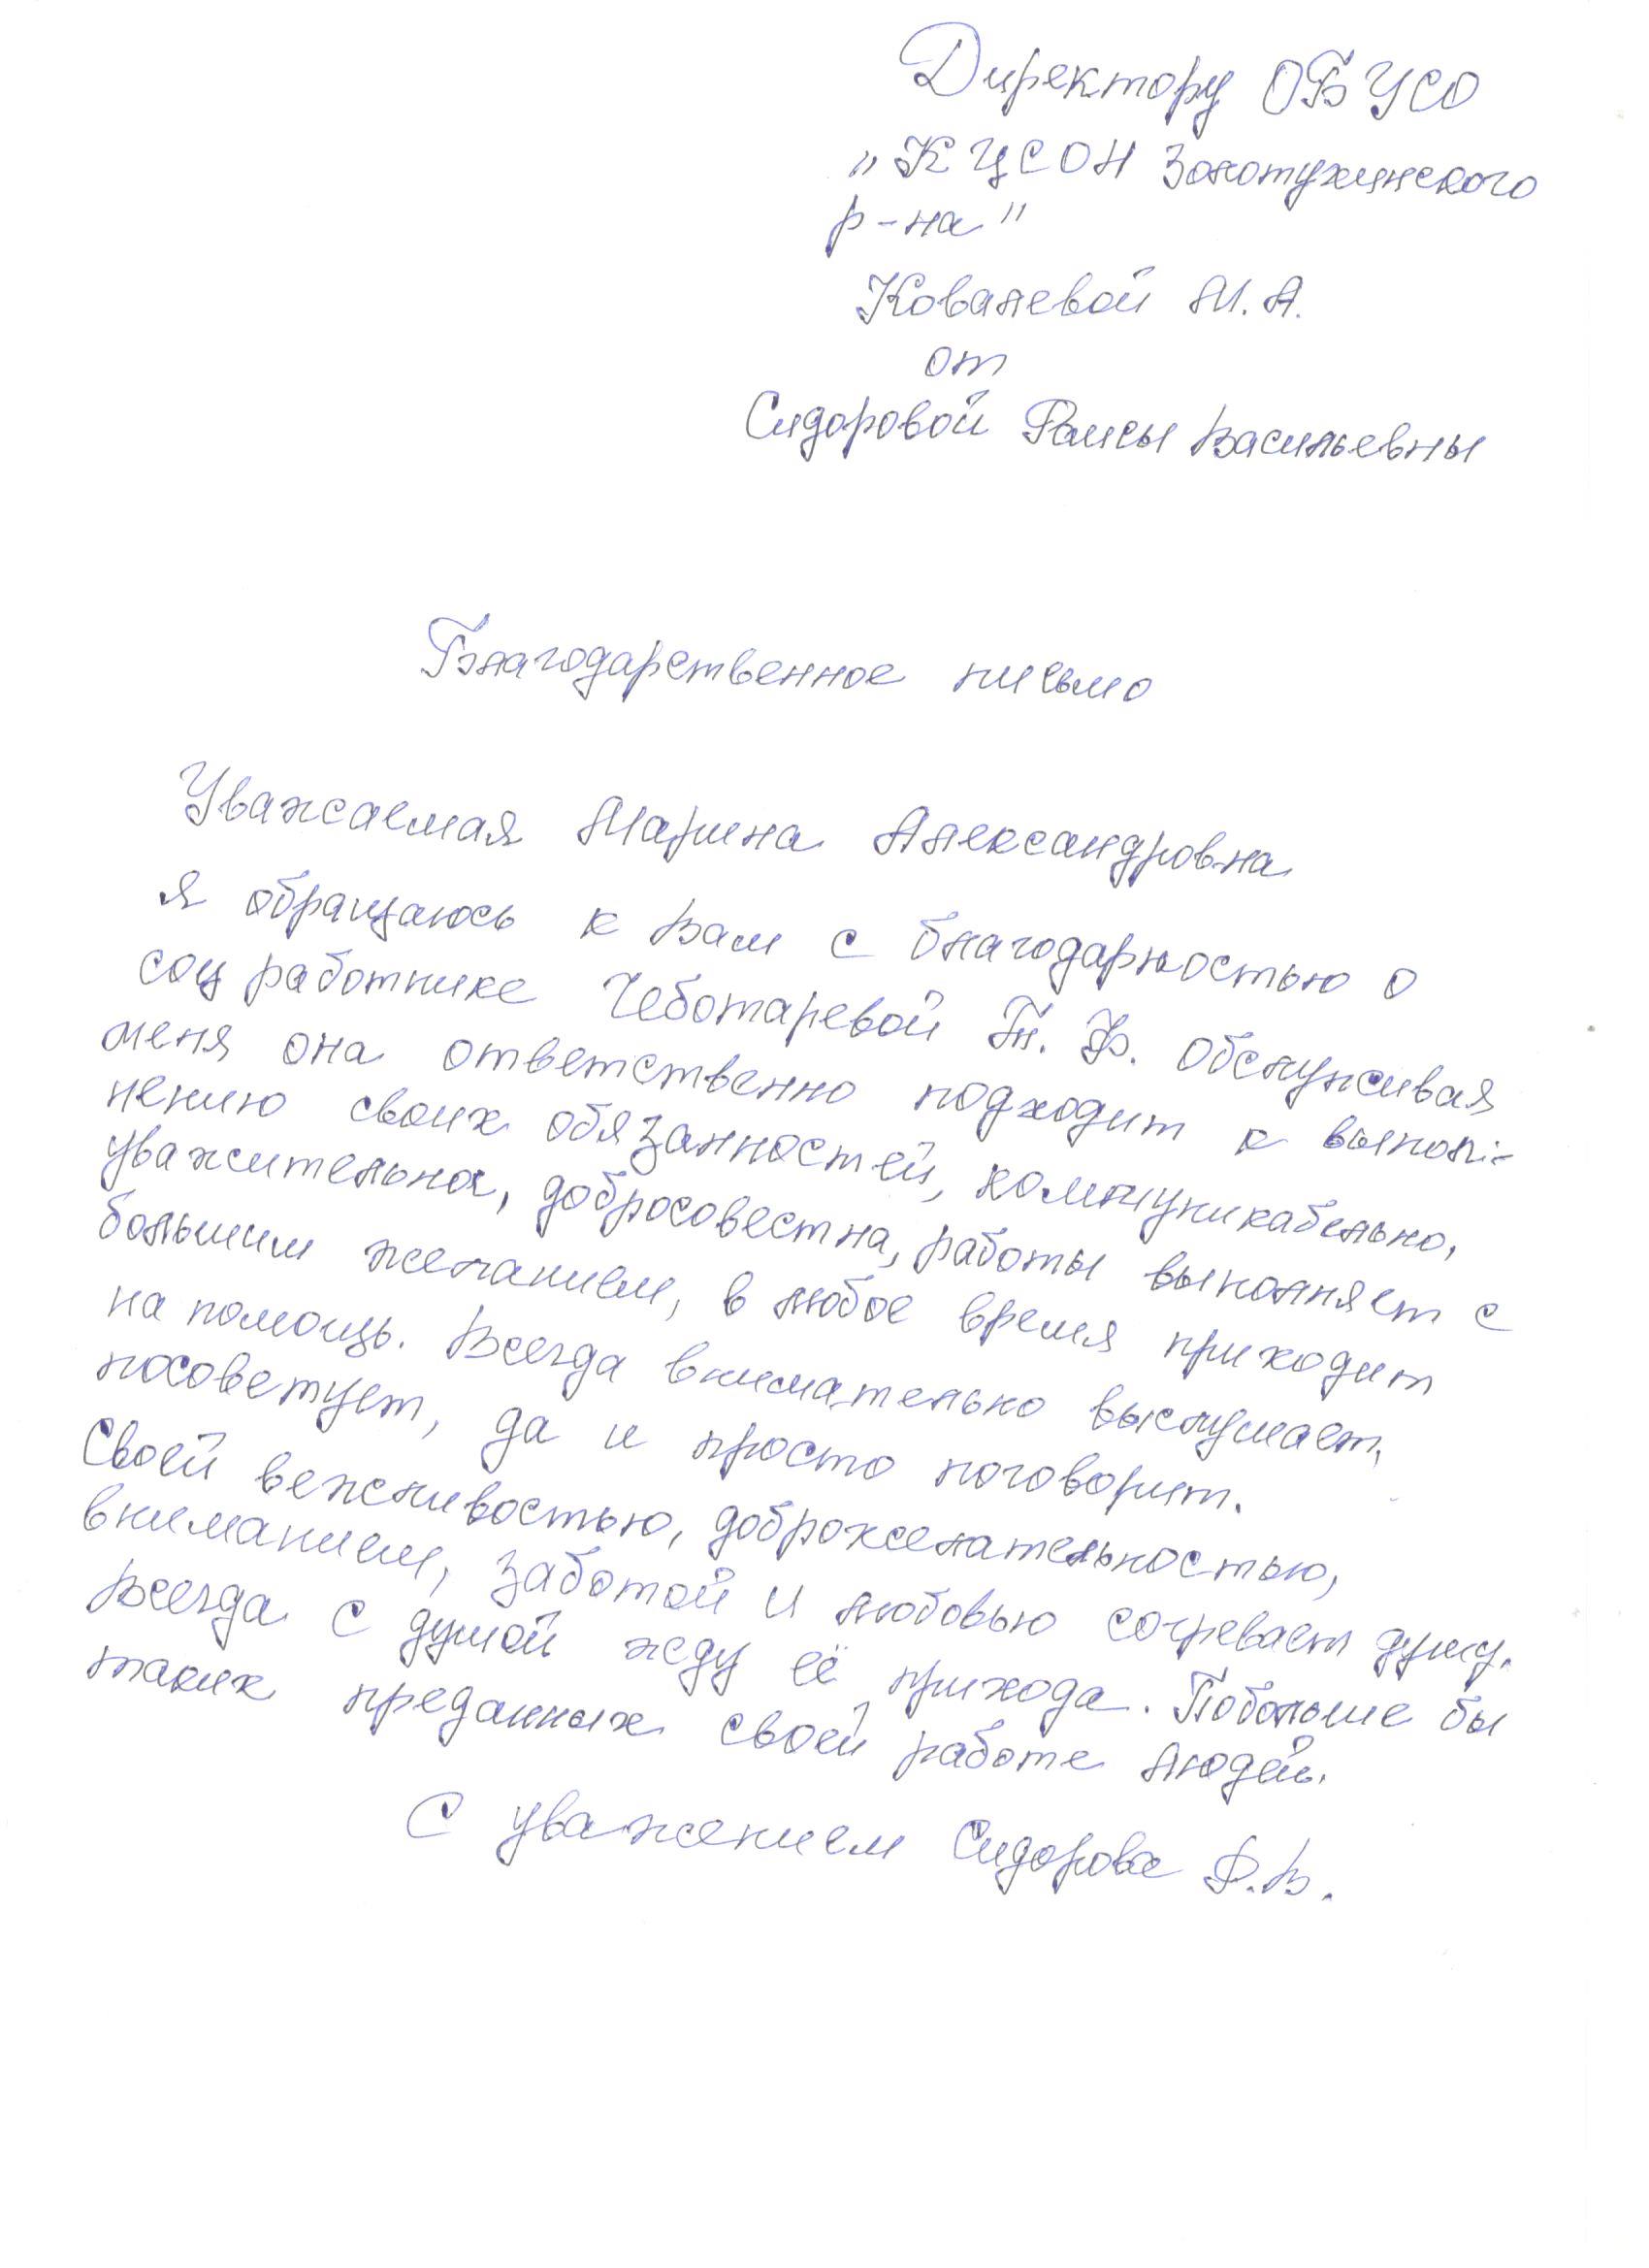 Директору ОБУСО
"КЦСОН Золотухинского
р-на"
Ковалевой М.А.
от
Сидоровой Раисы Васильевны
Благодарственное письмо
Уважаемая Марина Александровна
я обращаюсь к Вам с благодарностью о
соц работнике Чеботаревой Т. Ф. Обслуживая
меня она ответственно подходит к выпол-
нению своих обязанностей, коммуникабельно,
уважительна, добросовестна, работы выполняет с
большим желанием, в любое время приходит
на помощь. Всегда внимательно выслушает,
посоветует, да и просто поговорит.
Своей вежливостью, доброжелательностью,
вниманием, заботой и любовью согревает душу.
Всегда с душой жду её прихода. Побольше бы
таких преданных своей работе людей.
С уважением Сидорова Р.В.